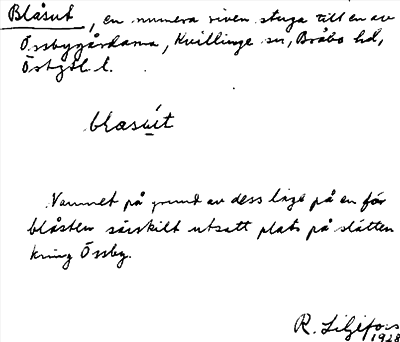 Blåsut, en numera riven stuga till en av
Össbygårdarna, Kvillinge sn, Bråbo hd,
Östgöt. l.
blåsút
Namnet på grund av dess läge på en för
blåsten särskilt utsatt plats på slätten
kring Össby.
R. Liljefors
1928